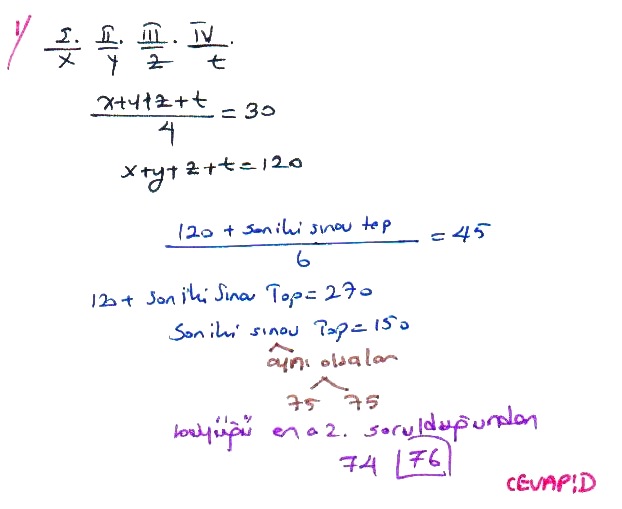 1) I. II. III. IV.
x y z t
x+y+z+t / 4 = 30
x+y+z+t=120
120 + son iki sınav top / 6 = 45
120+ son iki Sınav Top=270
Son iki sınav Top=150
aynı olsalar
75 75
büyüğü en a2. sorulduğundan
74 76
CEVAP:D